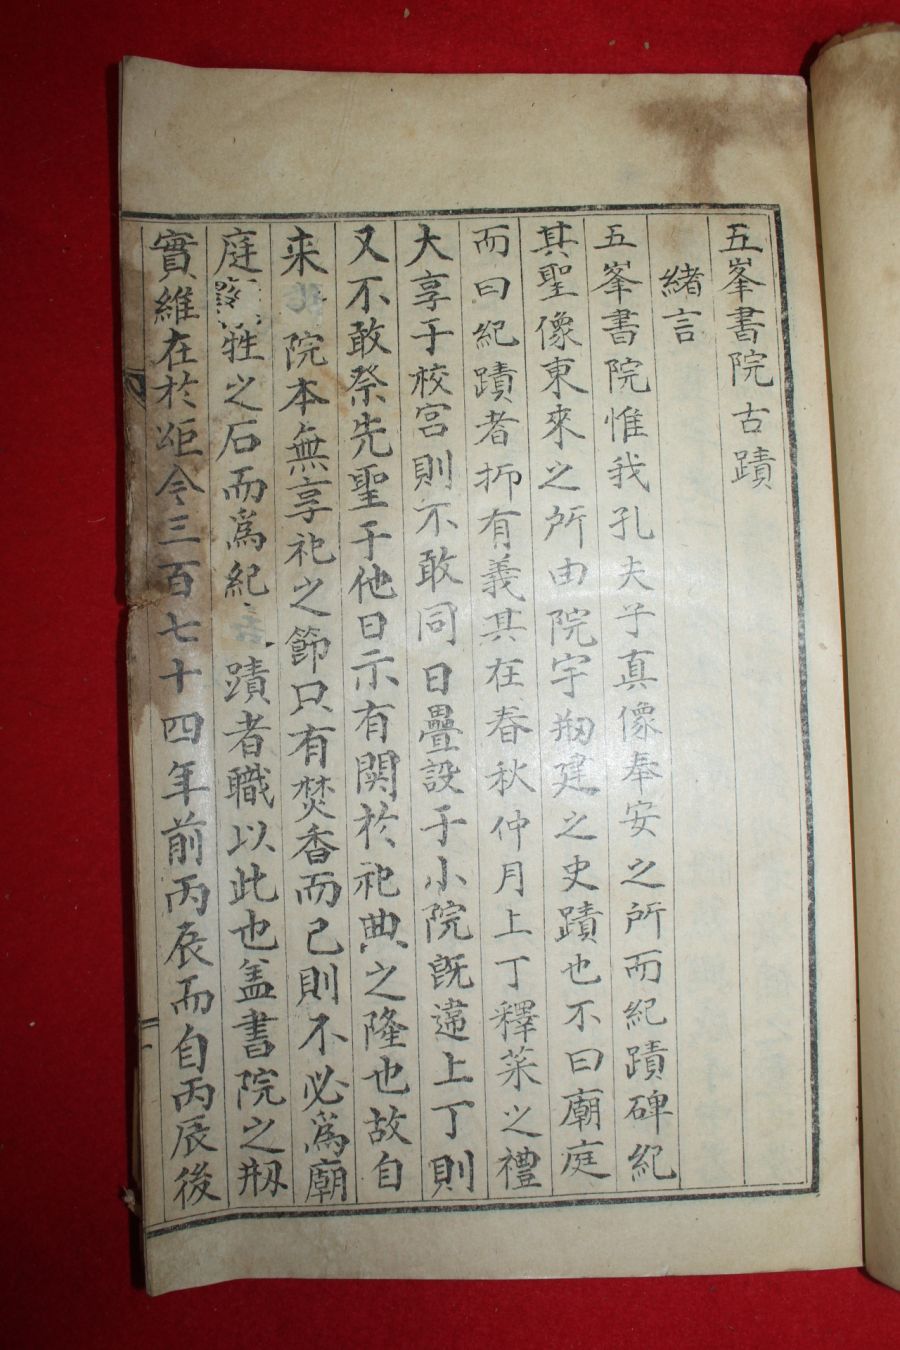 五峯書院古蹟
緖言
五峯書院惟我孔夫子真像奉安之所而紀蹟碑紀
其聖像東來之所由院宇刱建之史蹟也不曰廟庭
而曰紀蹟者抑有義其在春秋仲月上丁釋菜之禮
大享于校宮則不敢同日疊設于小院旣違上丁則
又不敢祭先聖于他日示有関於祀典之隆也故自
来 院本無享祀之節只有焚香而已則不必爲廟
庭麗牲之石而爲紀蹟者職以此也盖書院之刱
實維在於岠今三百七十四年前丙辰而自丙辰後